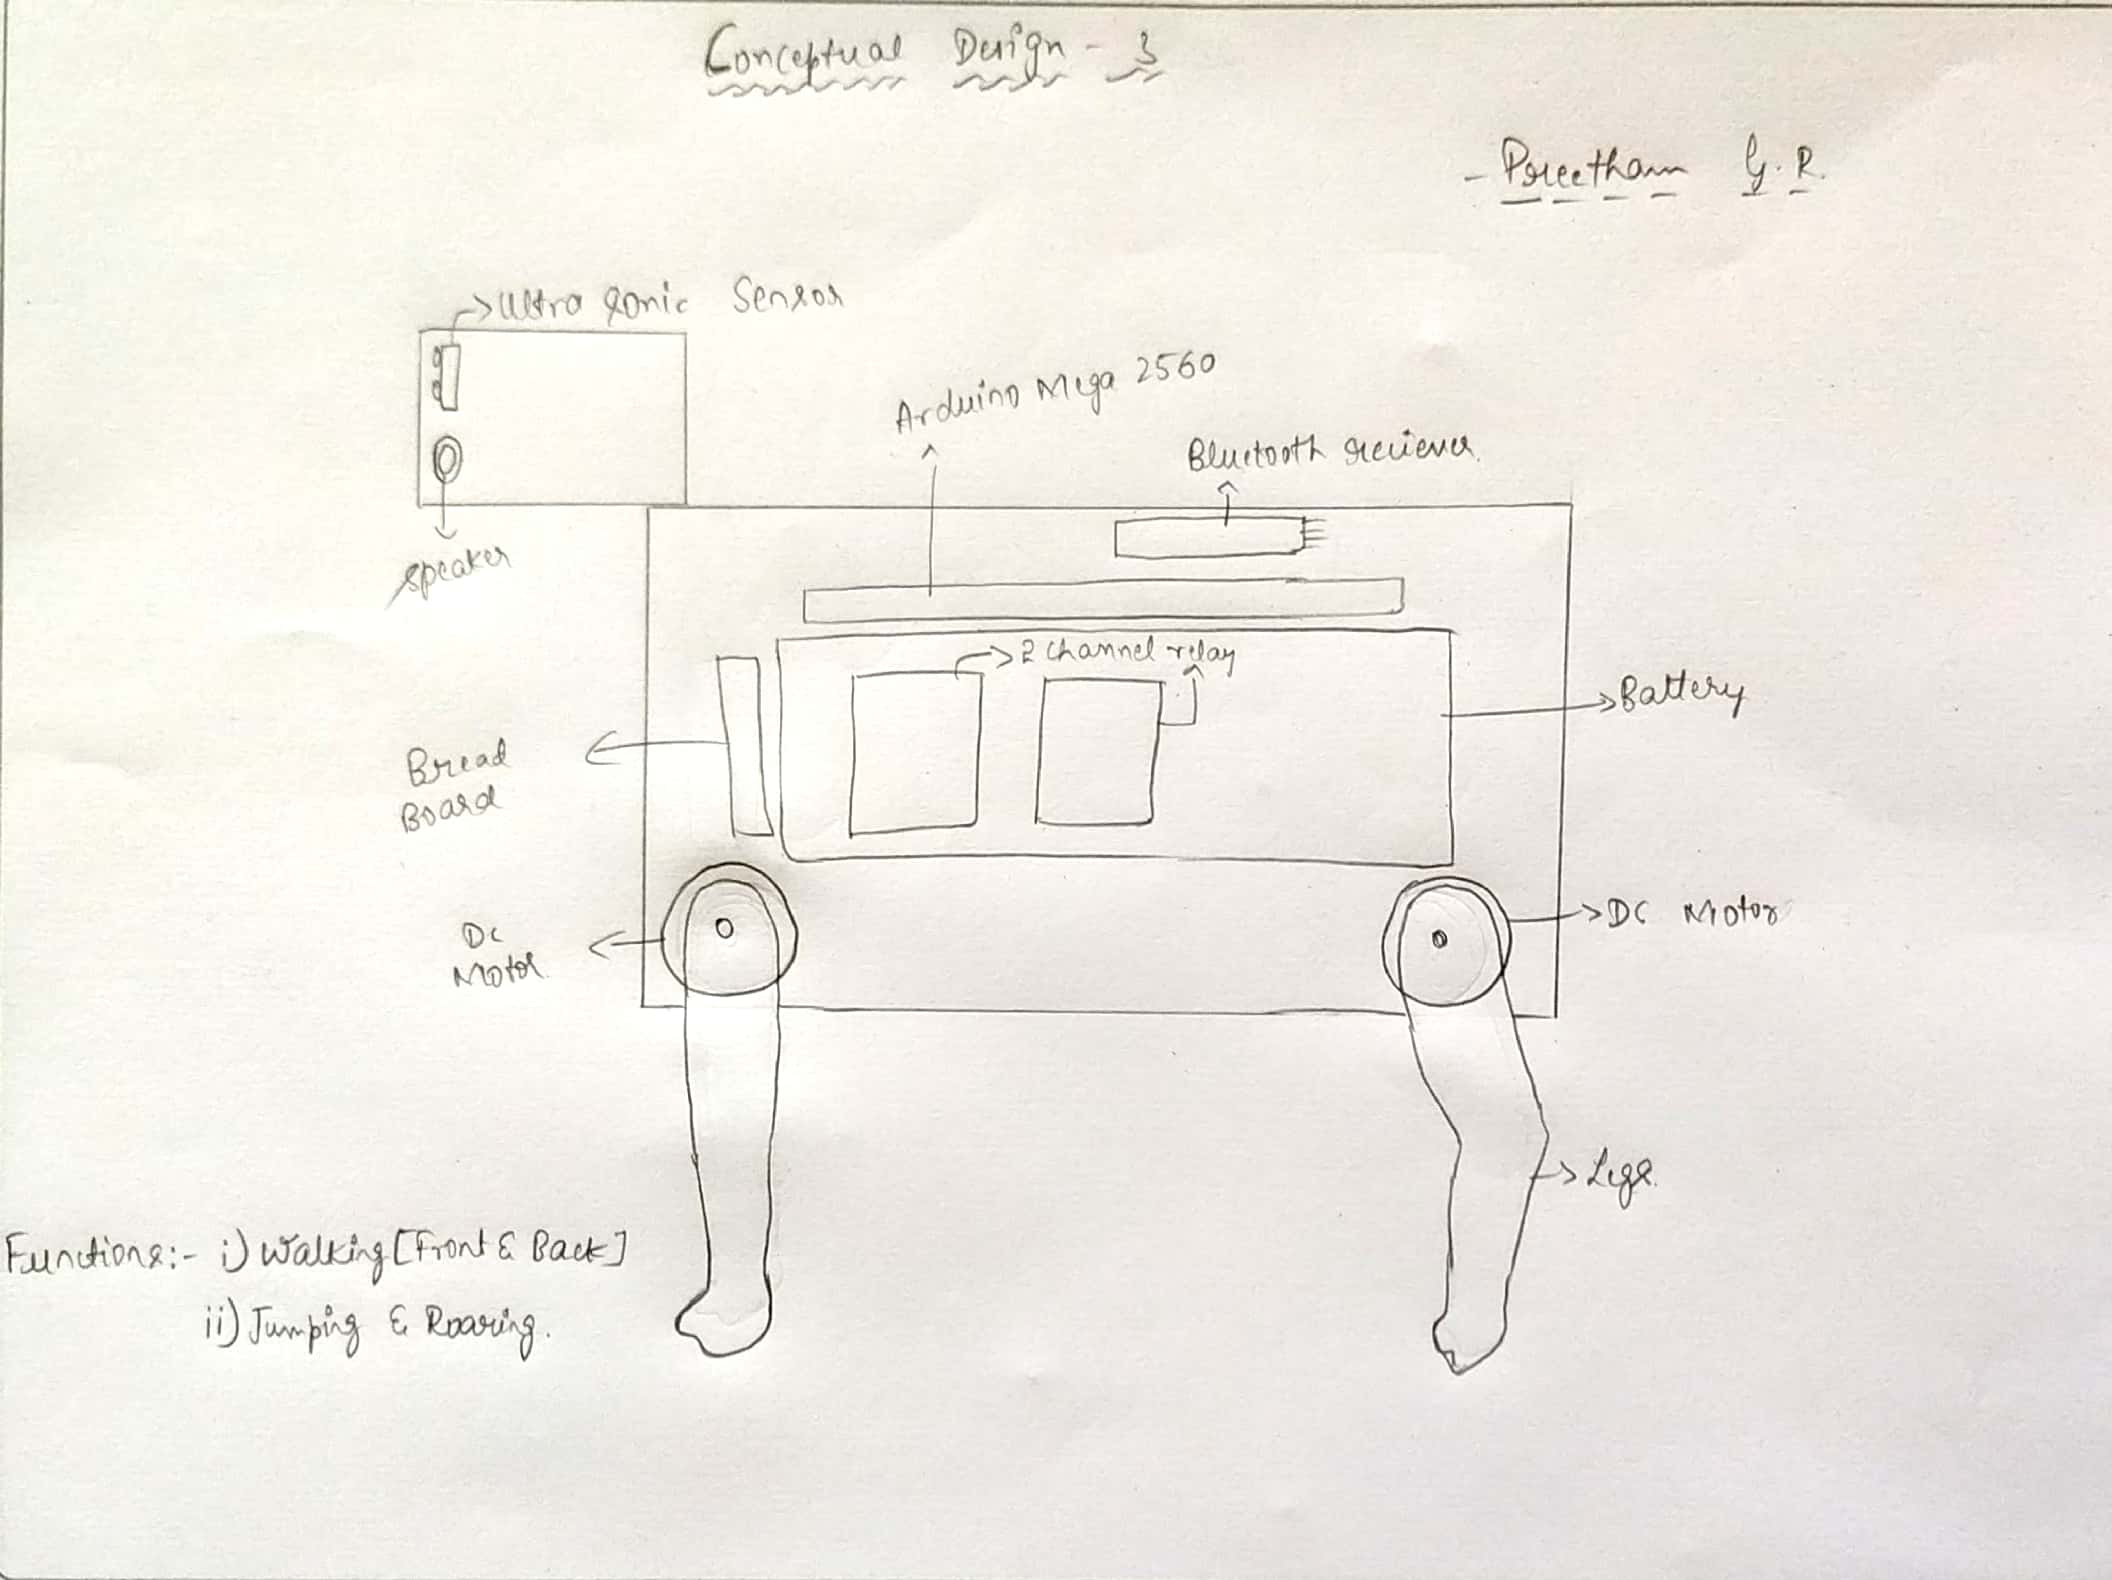 Conceptual Design - 3
- Preetham G.R.
Ultra Sonic Sensor
Arduino Mega 2560
Bluetooth reciever.
speaker
2 channel relay
Battery
Bread
Board
DC
Motor.
DC Motor
Legs.
Functions:- i) Walking [Front & Back]
ii) Jumping & Roaring.